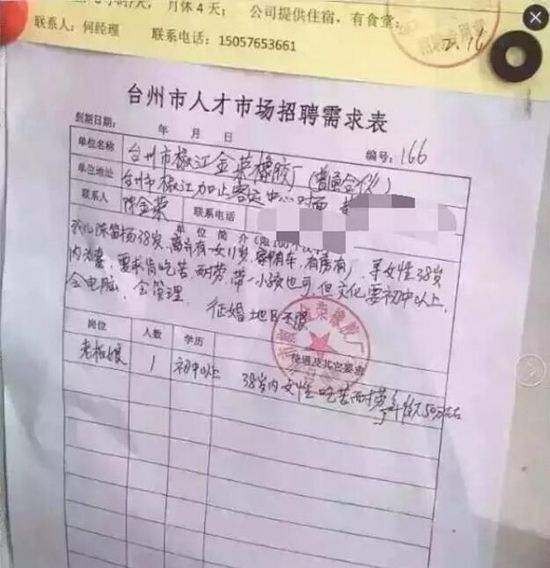 月休4天； 公司提供住宿，有食堂；
联系人：何经理 联系电话：15057653661
台州市人才市场招聘需求表
到期日期： 年 月 日 编号：166
单位名称 台州市椒江金荣橡胶厂（普通合伙）
单位地址 台州市椒江加止客运中心对面
联系人 陈金荣 联系电话
单位简介（限100个汉字）
38岁，离异有一女11岁，有车，有房有厂，寻女性38岁
内为妻，要求肯吃苦耐劳，带一小孩也可，但文化要初中以上，
会电脑，会管理。 征婚地区不限
岗位 人数 学历 待遇及其它要求
老板娘 1 初中以上 38岁内女性，吃苦耐劳，年薪50万左右